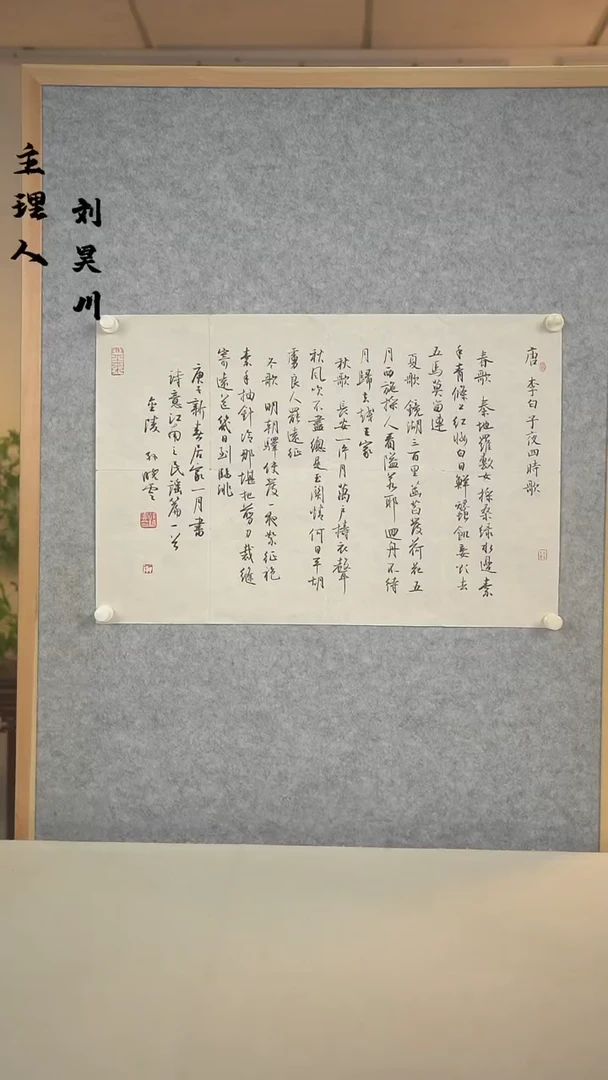 主理人
刘昊川
唐 李白子夜四時歌
春歌 秦地羅敷女採桑綠水邊素
手青條上紅妝白日鮮蠶飢妾欲去
五馬莫留連
夏歌 鏡湖三百里菡萏發荷花五
月西施採人看隘若耶迴舟不待
月歸去越王家
秋歌 長安一片月萬戶擣衣聲
秋風吹不盡總是玉關情何日平胡
虜良人罷遠征
冬歌 明朝驛使發一夜絮征袍
素手抽針冷那堪把剪刀裁縫
寄遠道幾日到臨洮
庚子新春居家一月書
詩意江南之民謠篇一首
金陵 孙晓雲